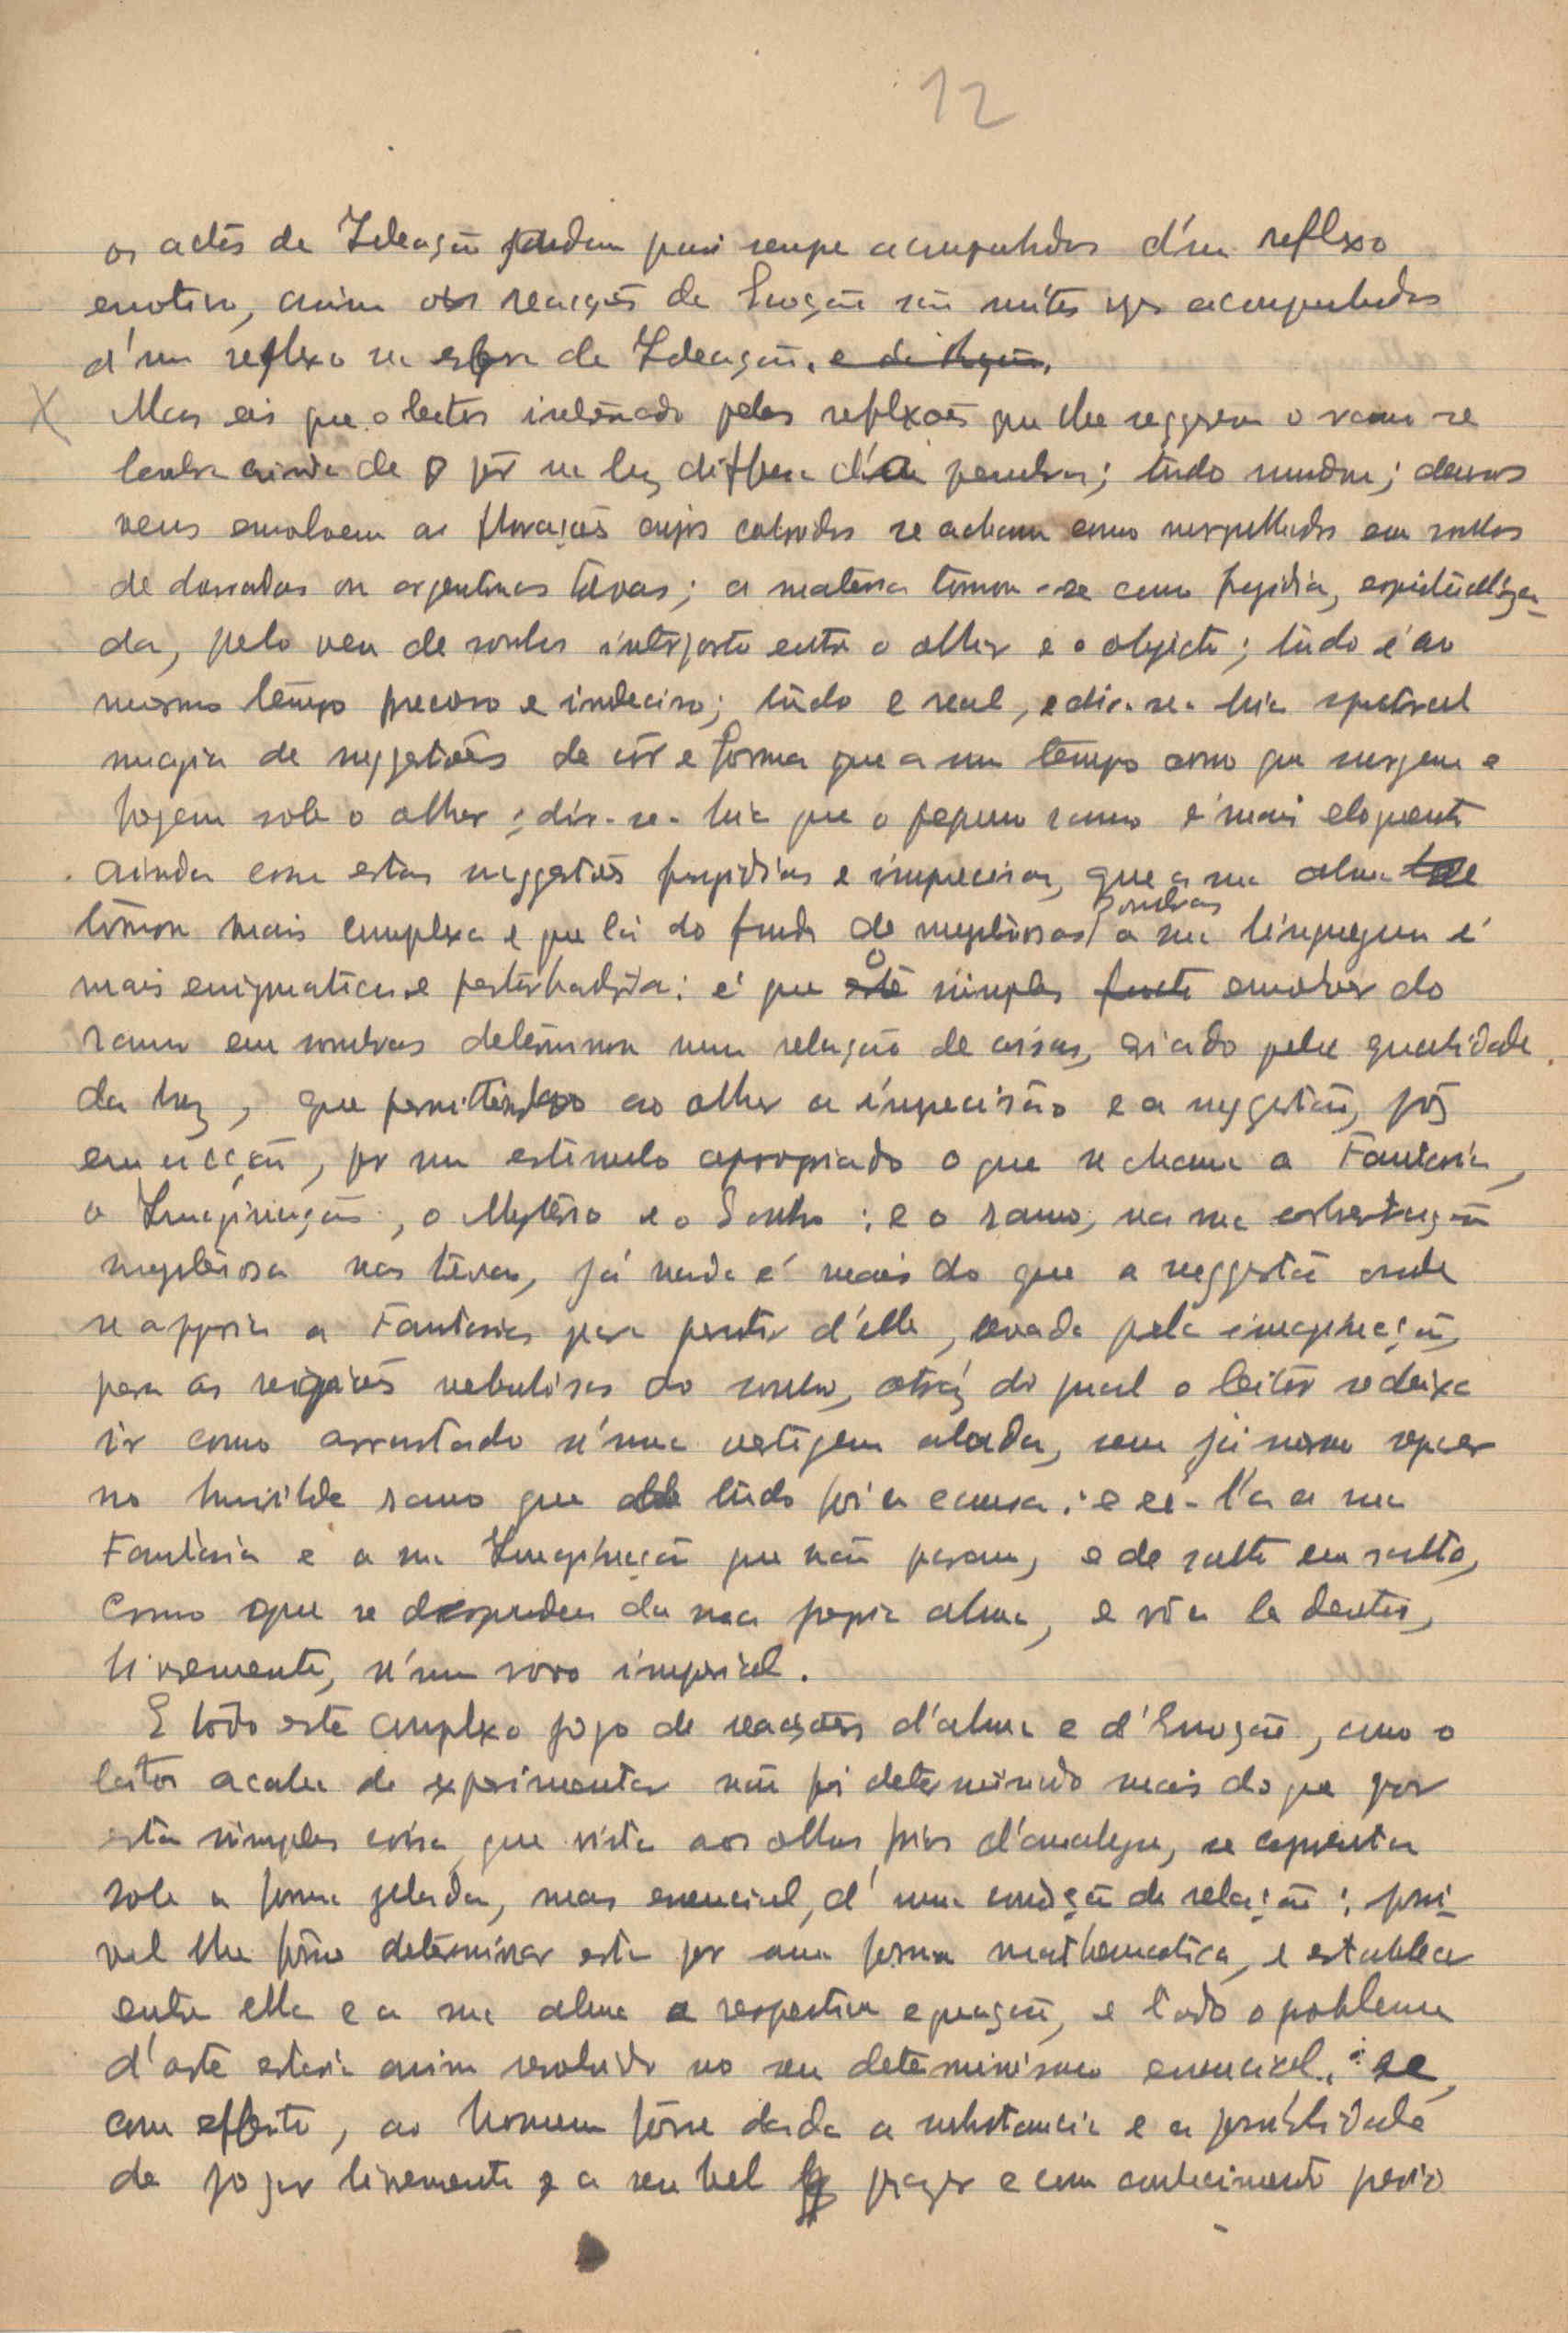 12
os actos de Ideação tendem quasi sempre acompanhados d'um reflexo
emotivo, assim as reacções da Emoção são muitas vezes acompanhadas
d'um reflexo na esfera da Ideação. e da Acção.
X Mas eis que o leitor inclinado pelas reflexões que lhe suggerem o ramo se
lembra ainda de o pôr na luz diffusa d'uma penumbra; tudo mudou; densos
veus envolvem as florações cujos coloridos se acham como mergulhados em sonhos
de douradas ou argentinas trevas; a materia tornou-se como fugidia, espiritualiza-
da, pelo veu de sonho interposto entre o olhar e o objecto; tudo é ao
mesmo tempo preciso e indeciso; tudo é real, e dir-se-hia spectral
magia de suggestões de côr e forma que a um tempo como que surgem e
fogem sob o olhar; dir-se-hia que o pequeno ramo é mais eloquente
ainda com estas suggestões fugidias e imprecisas, que a sua alma se
tornou mais complexa e que lá do fundo de mysteriosas sombras a sua linguagem é
mais enigmatica e perturbadora: é que o simples facto envolver do
ramo em sombras determinou uma relação de coisas, criado pela qualidade
da luz, que permittindo ao olhar a imprecisão e a suggestão, poz
em acção, por um estimulo apropriado o que se chama a Fantasia,
a Imaginação, o Mysterio e o Sonho: e o ramo, na sua
mysteriosa nas trevas, já nada é mais do que a suggestão onde
se appoia a Fantasia para partir d'elle, levada pela imaginação,
para as regiões nebulosas do sonho, atraz do qual o leitor se deixa
ir como arrastado n'uma vertigem alada, sem já mesmo reparar
no humilde ramo que de tudo foi a causa: e ei-l'a a sua
Fantasia e a sua Imaginação que não param, e de salto em salto,
como que se desprendem da sua propria alma, e vôa lá dentro,
livremente, n'um vôo imperial.
E todo este complexo jogo de reacções d'alma e d'Emoção, como o
leitor acaba de experimentar não foi determinado mais do que por
esta simples coisa que vista aos olhos frios d'analyse, se apresenta
sob a forma gelada, mas essencial, d'uma condição de relação: possi-
vel lhe fôsse determinar esta por uma forma mathematica, e estabelecer
entre ella e a sua alma a respectiva equação, e todo o problema
d'arte estaria assim resolvido no seu determinismo essencial: se,
com effeito, ao homem fôsse dada a substancia e a possibilidade
de jogar livremente e a seu bel prazer e com conhecimento previo